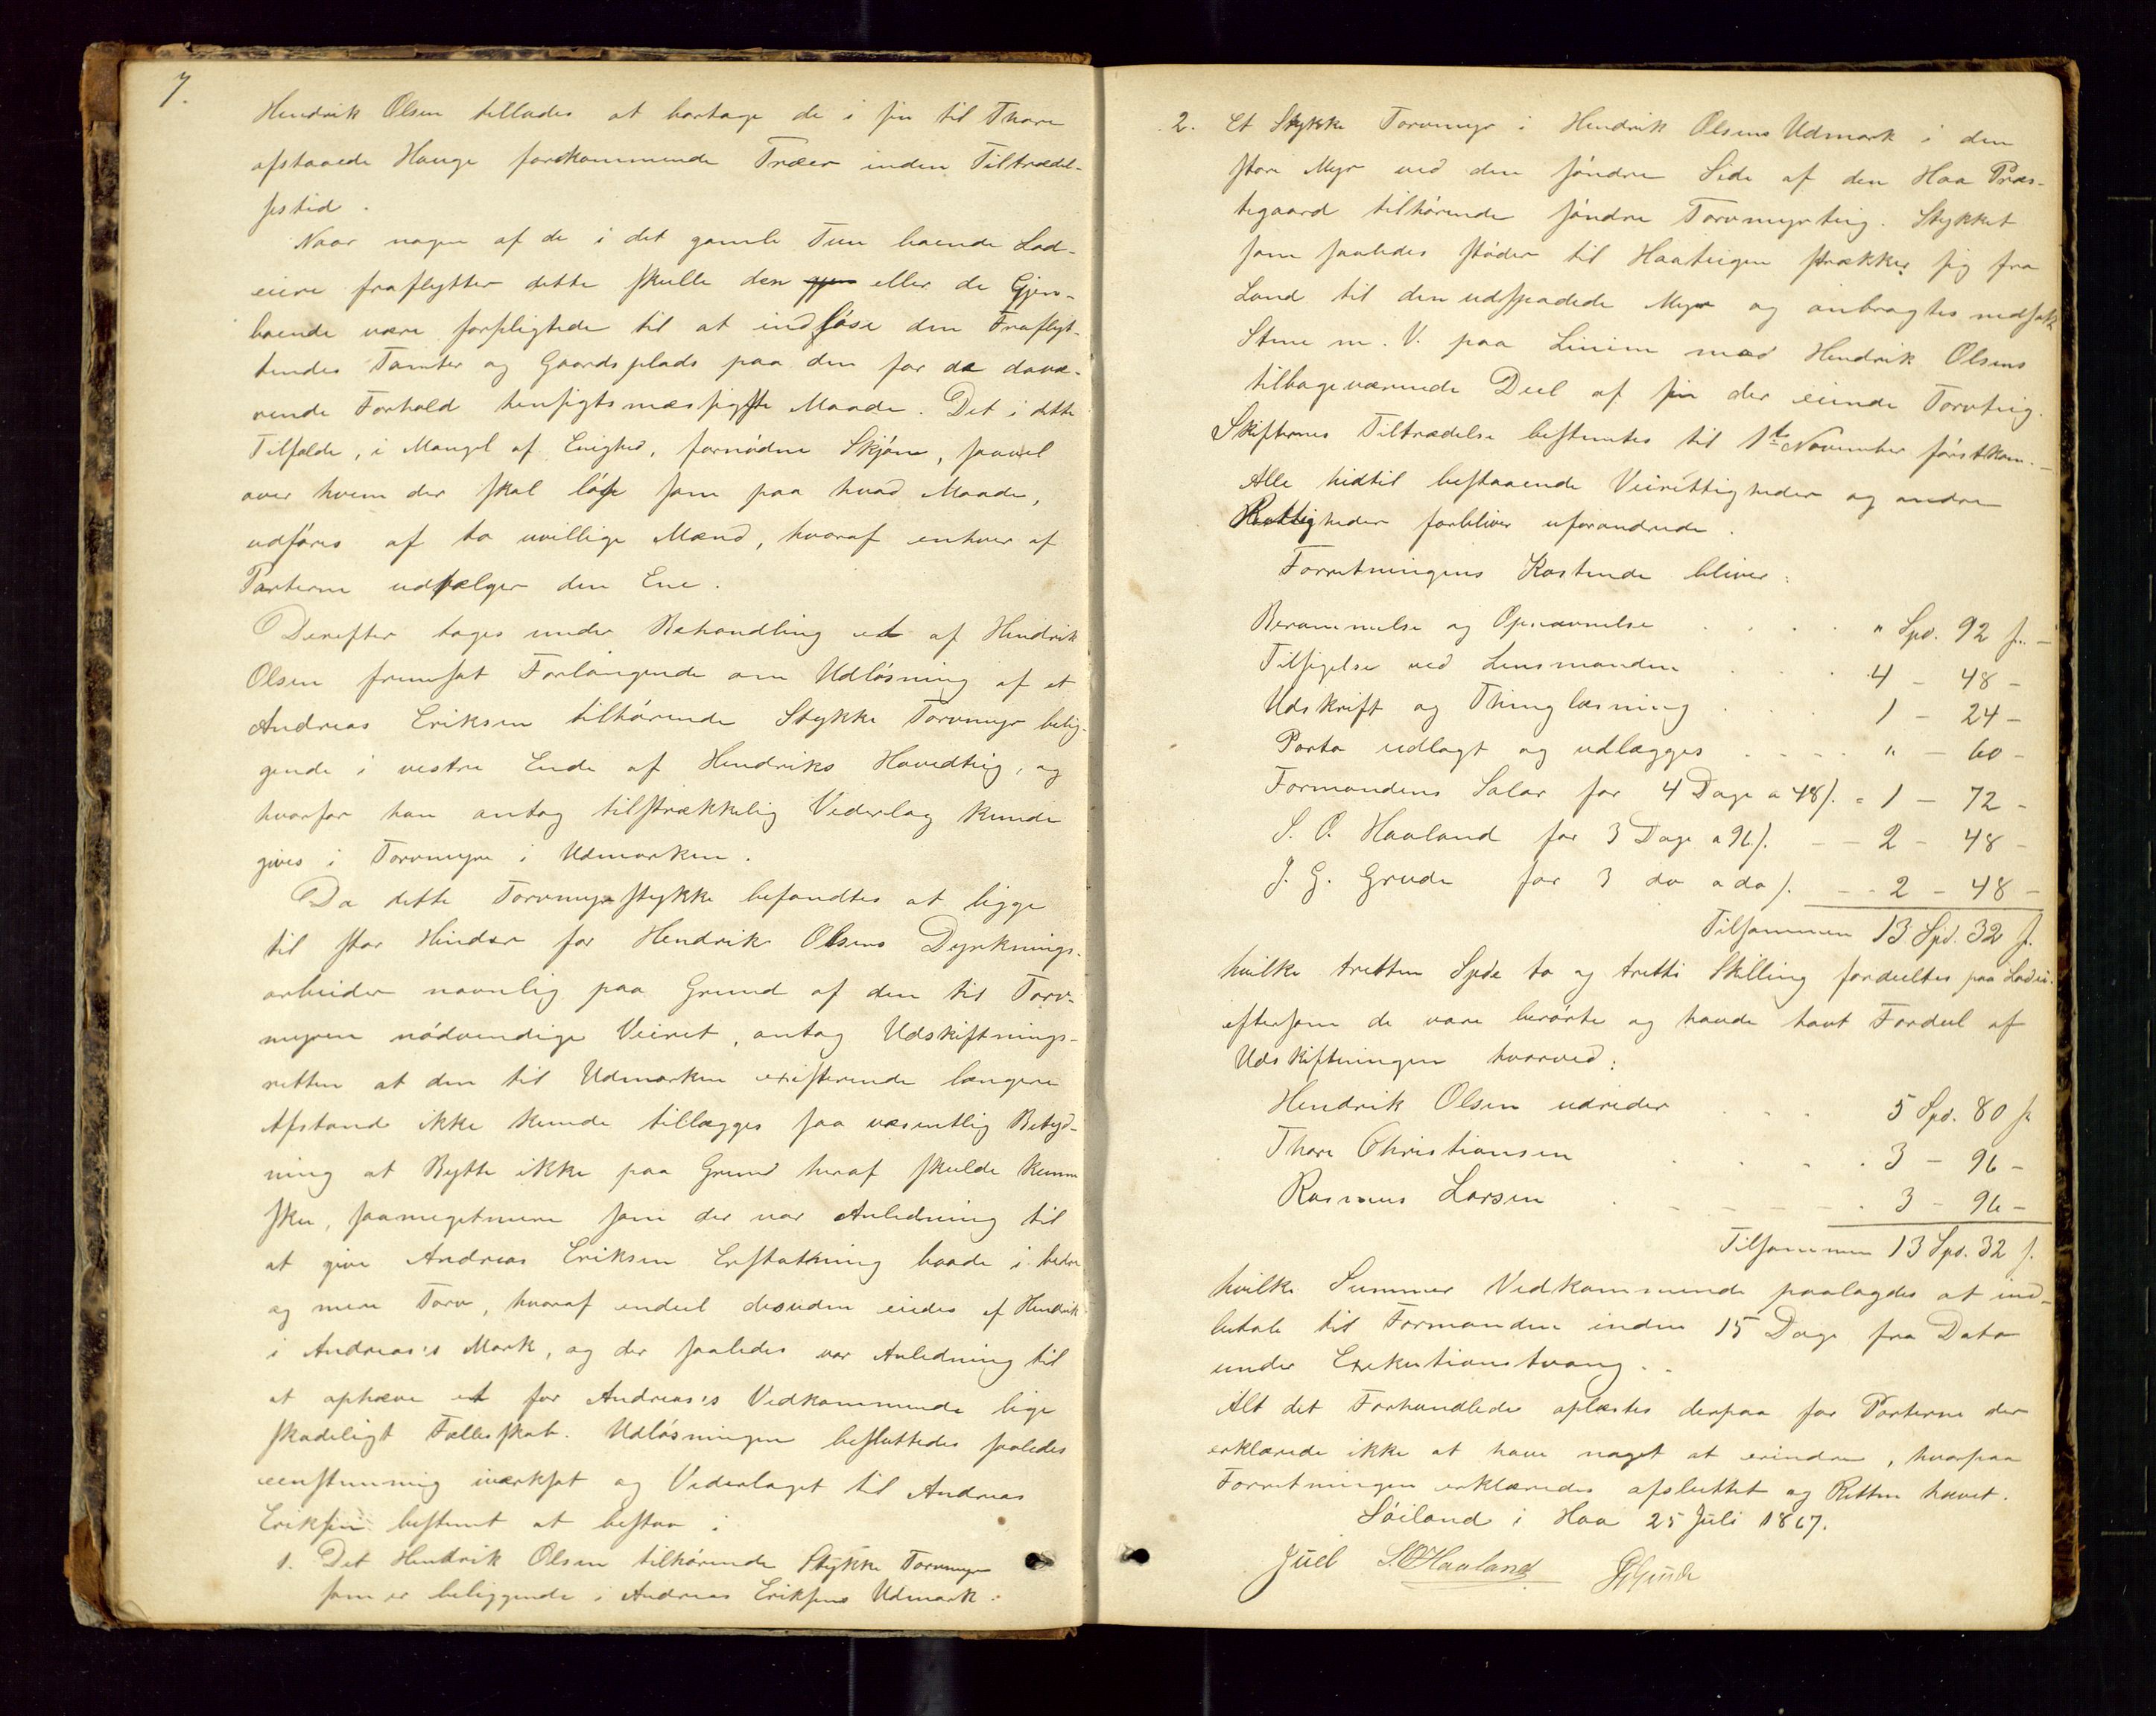 7.
Hendrik Olsen tillades at borttage de i sin til Thore
afstaaede Hauge forekommende Træer inden Tiltrædel-
sestid.
Naar nogen af de i det gamle Tun boende Lod-
eiere fraflytter dette skulle den eller de Gjen-
boende være forpligtede til at indløse den Fraflyt-
tendes Tomter og Gaardsplads paa den for de davæ-
rende Forhold hensigtsmæssigste Maade. Det i dette
Tilfælde, i Mangel af Enighed, fornødne Skjøn, saavel
over hvem der skal løse som paa hvad Maade,
udføres af to uvillige Mænd, hvoraf enhver af
Parterne udvælger den Ene.
Derefter toges under Behandling et af Hendrik
Olsen fremsat Forlangende om Udløsning af et
Andreas Eriksen tilhørende Stykke Torvmyr belig-
gende i vestre Ende af Hendriks Hovedteig, og
hvorfor han antog tilstrækkelig Vederlag kunde
gives i Torvmyr i Udmarken.
Da dette Torvmyrstykke befandtes at ligge
til stor Hinder for Hendrik Olsens Dyrknings-
arbeider navnlig paa Grund af den til Torv-
myren nødvendige Veiret, antog Udskiftnings-
retten at den til Udmarken existerende længere
Afstand ikke kunde tillægges saa væsentlig Betyd-
ning at Bytte ikke paa Grund heraf skulde kunne
ske, saameget mere som der var Anledning til
at give Andreas Eriksen Erstatning baade i bedre
og mere Torv, hvoraf endeel desuden eiedes af Hendrik
i Andreas's Mark, og der saaledes var Anledning til
at ophæve et for Andreas's Vedkommende lige
skadeligt Fællesskab. Udløsningen besluttedes saaledes
eenstemmig iværksat og Vederlaget til Andreas
Eriksen bestemt at bestaa i
1. Det Hendrik Olsen tilhørende Stykke Torvmyr
som er beliggende i Andreas Eriksens Udmark.
2. Et Stykke Torvmyr i Hendrik Olsens Udmark i den
store Myr ved den søndre Side af den Haa Præs-
tegaard tilhørende søndre Torvmyrteig. Stykket
som saaledes støder til Haateigen strækker sig fra
Land til den udspadede Myr og anbragtes nedsatte
Stene m. V. paa Linien mod Hendrik Olsens
tilbageværende Deel af sin der eiende Torvteig.
Skifternes Tiltrædelse bestemtes til 1ste November førstkom.
Alle hidtil bestaaende Veirettigheder og andre
Rettigheder forbliver uforandrede.
Forretningens Kostende bliver:
Berammelse og Opnævnelse . . . . " Spd. 92 s. -
Tilsigelse ved Lensmanden . . . . 4 - 48 -
Udskrift og Thinglæsning . . . 1 - 24 -
Porto udlagt og udlægges . . . . " - 60 -
Formandens Salar for 4 Dage a 48 s. = 1 - 72 -
S. O. Haaland for 3 Dage a 96 s. - - 2 - 48 -
J. G. Grude for 3 do a do s. - - 2 - 48 -
Tilsammen 13 Spd. 32 s.
hvilke tretten Spdr to og tretti Skilling fordeeltes paa Lodei.
eftersom de vare berørte og havde havt Fordeel af
Udskiftningen hvorved:
Hendrik Olsen udreder . . . 5 Spd. 80 s.
Thore Christiansen . . . . 3 - 96 -
Rasmus Larsen . - - - - . 3 - 96 -
Tilsammen 13 Spd. 32 s.
hvilke Summer Vedkommende paalagdes at ind-
betale til Formanden inden 15 Dage fra Dato
under Exekutionstvang.
Alt det Forhandlede oplæstes derpaa for Parterne der
erklærede ikke at have noget at erindre, hvorpaa
Forretningen erklæredes afsluttet og Retten hævet.
Søiland i Haa 25 Juli 1867.
Juel S. O Haaland JGGrude